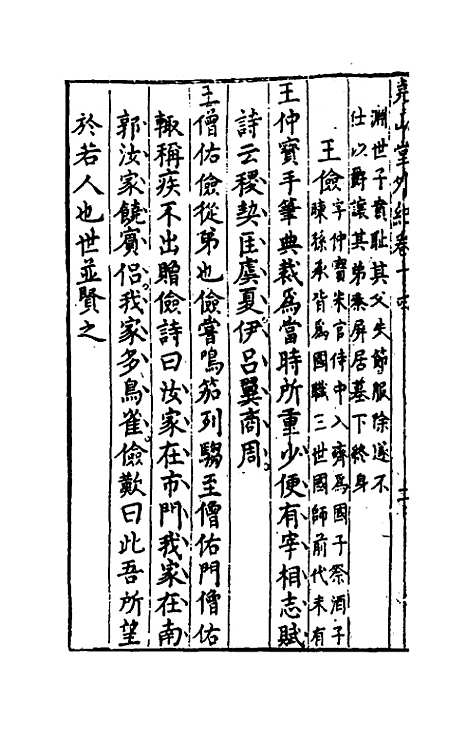 堯山堂外紀卷十四 三
淵世子賁耻其父失節服除遂不
仕以爵讓其弟蓁屏居墓下終身
王儉字仲寶宋官侍中入齊爲國子祭酒子
暕孫承皆爲國職三世國師前代未有
王仲寶手筆典裁爲當時所重少便有宰相志賦
詩云稷契匡虞夏伊呂翼商周
王僧佑儉從弟也儉嘗鳴笳列騶至僧佑門僧佑
輙稱疾不出贈儉詩曰汝家在市門我家在南
郭汝家饒賓侶我家多鳥雀儉歎曰此吾所望
於若人也世並賢之